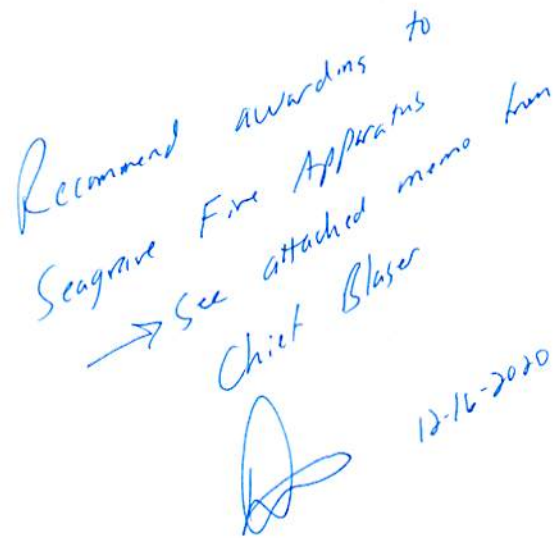 Recommend awarding to
Seagrave Fire Apparatus
→ See attached memo from
Chief Blaser
12-16-2020